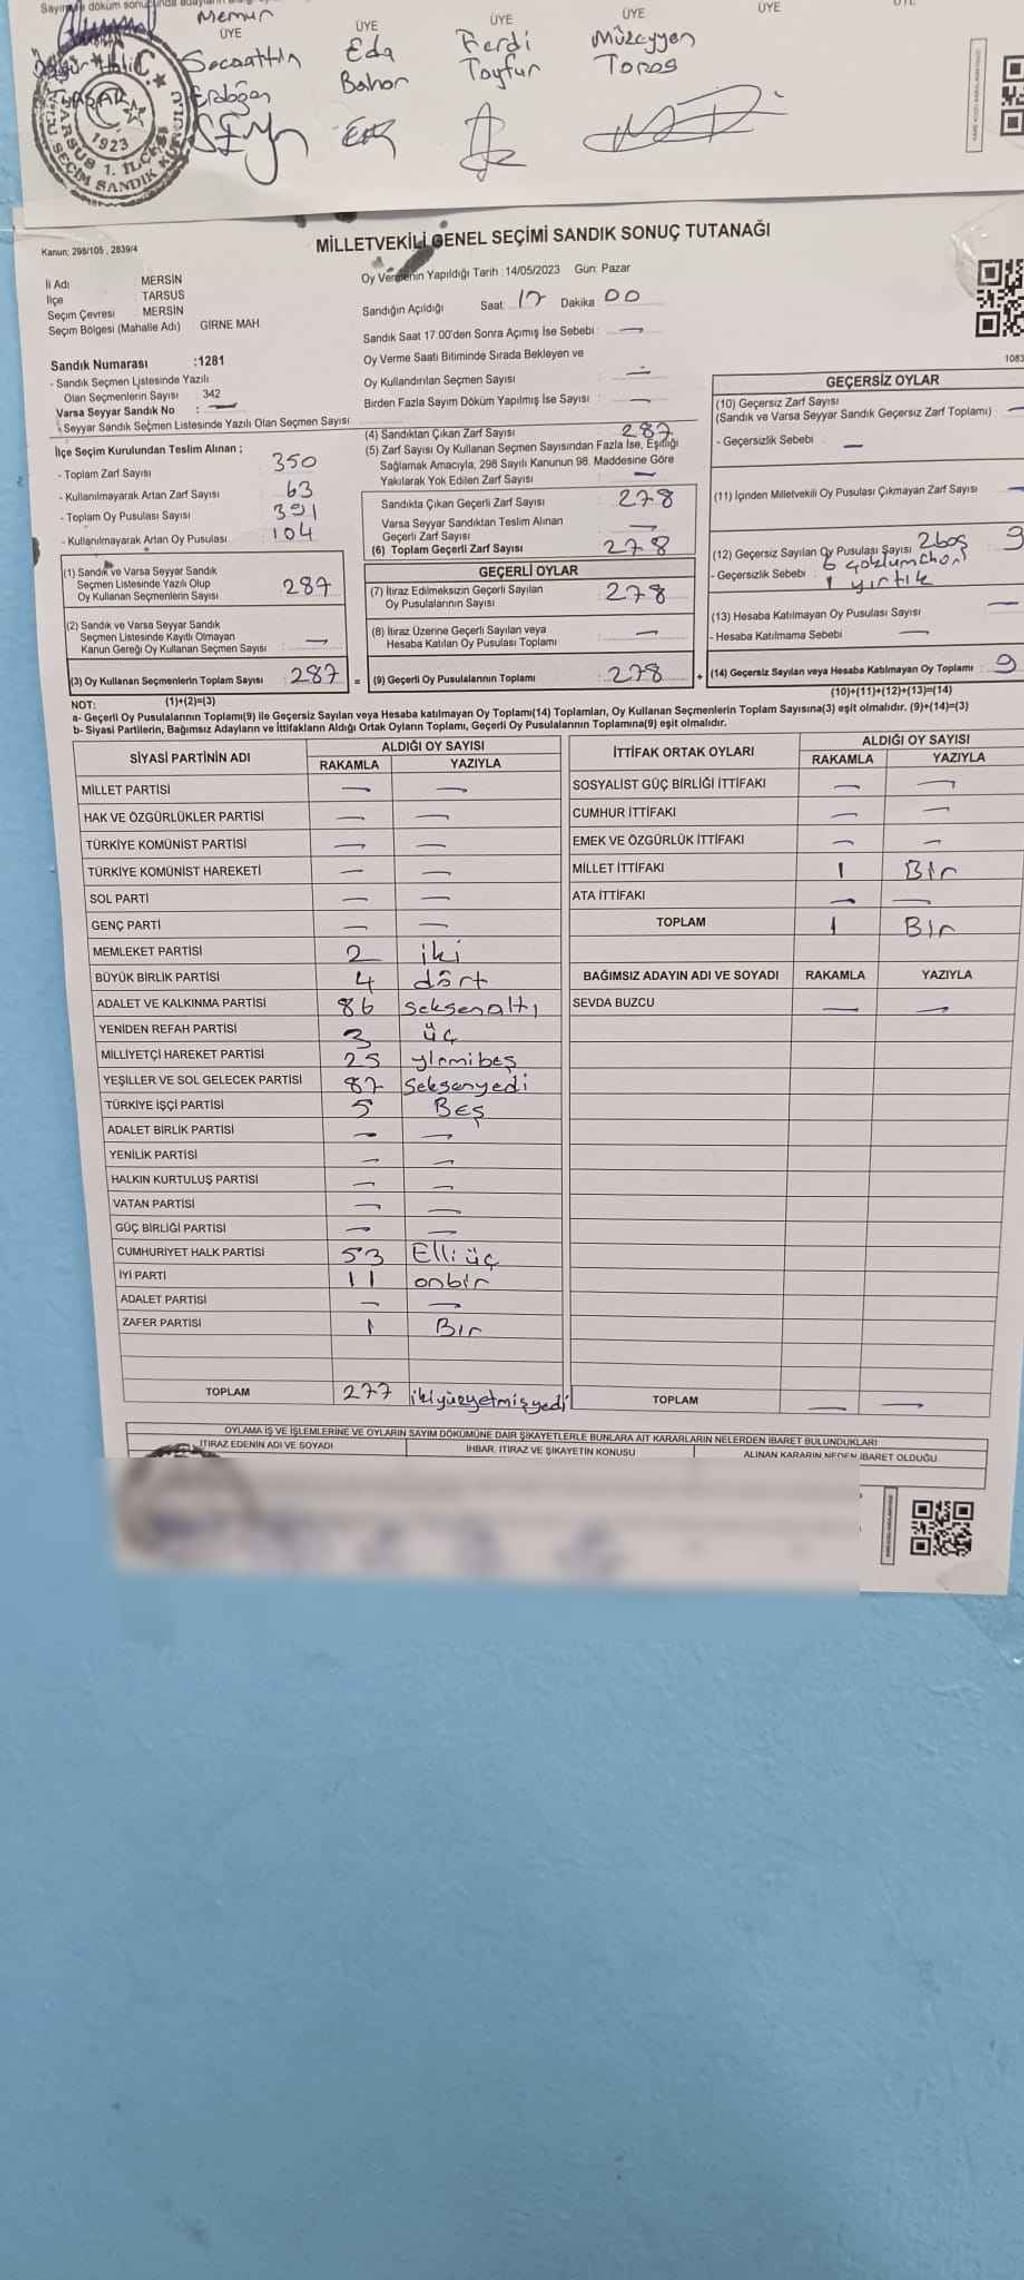 Memur
ÜYE ÜYE ÜYE ÜYE ÜYE
Secaattin Eda Ferdi Müzeyyen
Erdoğan Bahar Tayfur Toros
T.C.
1923
TARSUS 1. İLÇE SEÇİM SANDIK KURULU
Kanun: 298/105 , 2839/4
MİLLETVEKİLİ GENEL SEÇİMİ SANDIK SONUÇ TUTANAĞI
İl Adı MERSİN
İlçe TARSUS
Seçim Çevresi MERSİN
Seçim Bölgesi (Mahalle Adı) GİRNE MAH
Sandık Numarası :1281
- Sandık Seçmen Listesinde Yazılı
Olan Seçmenlerin Sayısı 342
Varsa Seyyar Sandık No : —
Seyyar Sandık Seçmen Listesinde Yazılı Olan Seçmen Sayısı
Oy Vermenin Yapıldığı Tarih :14/05/2023 Gün: Pazar
Sandığın Açıldığı Saat: 17 Dakika 00
Sandık Saat 17.00'den Sonra Açımış İse Sebebi : —
Oy Verme Saati Bitiminde Sırada Bekleyen ve
Oy Kullandırılan Seçmen Sayısı : —
Birden Fazla Sayım Döküm Yapılmış İse Sayısı : —
İlçe Seçim Kurulundan Teslim Alınan ;
- Toplam Zarf Sayısı 350
- Kullanılmayarak Artan Zarf Sayısı 63
- Toplam Oy Pusulası Sayısı 391
- Kullanılmayarak Artan Oy Pusulası 104
(1) Sandık ve Varsa Seyyar Sandık
Seçmen Listesinde Yazılı Olup
Oy Kullanan Seçmenlerin Sayısı 287
(2) Sandık ve Varsa Seyyar Sandık
Seçmen Listesinde Kayıtlı Olmayan
Kanun Gereği Oy Kullanan Seçmen Sayısı —
(3) Oy Kullanan Seçmenlerin Toplam Sayısı 287 =
(4) Sandıktan Çıkan Zarf Sayısı 287
(5) Zarf Sayısı Oy Kullanan Seçmen Sayısından Fazla İse, Eşitliği
Sağlamak Amacıyla, 298 Sayılı Kanunun 98. Maddesine Göre
Yakılarak Yok Edilen Zarf Sayısı —
Sandıkta Çıkan Geçerli Zarf Sayısı 278
Varsa Seyyar Sandıktan Teslim Alınan
Geçerli Zarf Sayısı —
(6) Toplam Geçerli Zarf Sayısı 278
GEÇERLİ OYLAR
(7) İtiraz Edilmeksizin Geçerli Sayılan
Oy Pusulalarının Sayısı 278
(8) İtiraz Üzerine Geçerli Sayılan veya
Hesaba Katılan Oy Pusulası Toplamı —
(9) Geçerli Oy Pusulalarının Toplamı 278 +
1083
GEÇERSİZ OYLAR
(10) Geçersiz Zarf Sayısı
(Sandık ve Varsa Seyyar Sandık Geçersiz Zarf Toplamı) —
- Geçersizlik Sebebi : —
(11) İçinden Milletvekili Oy Pusulası Çıkmayan Zarf Sayısı —
(12) Geçersiz Sayılan Oy Pusulası Sayısı 2 boş 9
- Geçersizlik Sebebi : 6
1 yırtık
(13) Hesaba Katılmayan Oy Pusulası Sayısı —
- Hesaba Katılmama Sebebi : —
(14) Geçersiz Sayılan veya Hesaba Katılmayan Oy Toplamı 9
NOT: (1)+(2)=(3) (10)+(11)+(12)+(13)=(14)
a- Geçerli Oy Pusulalarının Toplamı(9) ile Geçersiz Sayılan veya Hesaba katılmayan Oy Toplamı(14) Toplamları, Oy Kullanan Seçmenlerin Toplam Sayısına(3) eşit olmalıdır. (9)+(14)=(3)
b- Siyasi Partilerin, Bağımsız Adayların ve İttifakların Aldığı Ortak Oyların Toplamı, Geçerli Oy Pusulalarının Toplamına(9) eşit olmalıdır.
SİYASİ PARTİNİN ADI ALDIĞI OY SAYISI
RAKAMLA YAZIYLA
MİLLET PARTİSİ — —
HAK VE ÖZGÜRLÜKLER PARTİSİ — —
TÜRKİYE KOMÜNİST PARTİSİ — —
TÜRKİYE KOMÜNİST HAREKETİ — —
SOL PARTİ — —
GENÇ PARTİ — —
MEMLEKET PARTİSİ 2 iki
BÜYÜK BİRLİK PARTİSİ 4 dört
ADALET VE KALKINMA PARTİSİ 86 seksenaltı
YENİDEN REFAH PARTİSİ 3 üç
MİLLİYETÇİ HAREKET PARTİSİ 25 yirmibeş
YEŞİLLER VE SOL GELECEK PARTİSİ 87 seksenyedi
TÜRKİYE İŞÇİ PARTİSİ 5 Beş
ADALET BİRLİK PARTİSİ — —
YENİLİK PARTİSİ — —
HALKIN KURTULUŞ PARTİSİ — —
VATAN PARTİSİ — —
GÜÇ BİRLİĞİ PARTİSİ — —
CUMHURİYET HALK PARTİSİ 53 Elli üç
İYİ PARTİ 11 onbir
ADALET PARTİSİ — —
ZAFER PARTİSİ 1 Bir
TOPLAM 277 ikiyüzyetmişyedi
İTTİFAK ORTAK OYLARI ALDIĞI OY SAYISI
RAKAMLA YAZIYLA
SOSYALİST GÜÇ BİRLİĞİ İTTİFAKI — —
CUMHUR İTTİFAKI — —
EMEK VE ÖZGÜRLÜK İTTİFAKI — —
MİLLET İTTİFAKI 1 Bir
ATA İTTİFAKI — —
TOPLAM 1 Bir
BAĞIMSIZ ADAYIN ADI VE SOYADI RAKAMLA YAZIYLA
SEVDA BUZCU — —
TOPLAM — —
OYLAMA İŞ VE İŞLEMLERİNE VE OYLARIN SAYIM DÖKÜMÜNE DAİR ŞİKAYETLERLE BUNLARA AİT KARARLARIN NELERDEN İBARET BULUNDUKLARI
İTİRAZ EDENİN ADI VE SOYADI İHBAR, İTİRAZ VE ŞİKAYETİN KONUSU ALINAN KARARIN NEDEN İBARET OLDUĞU